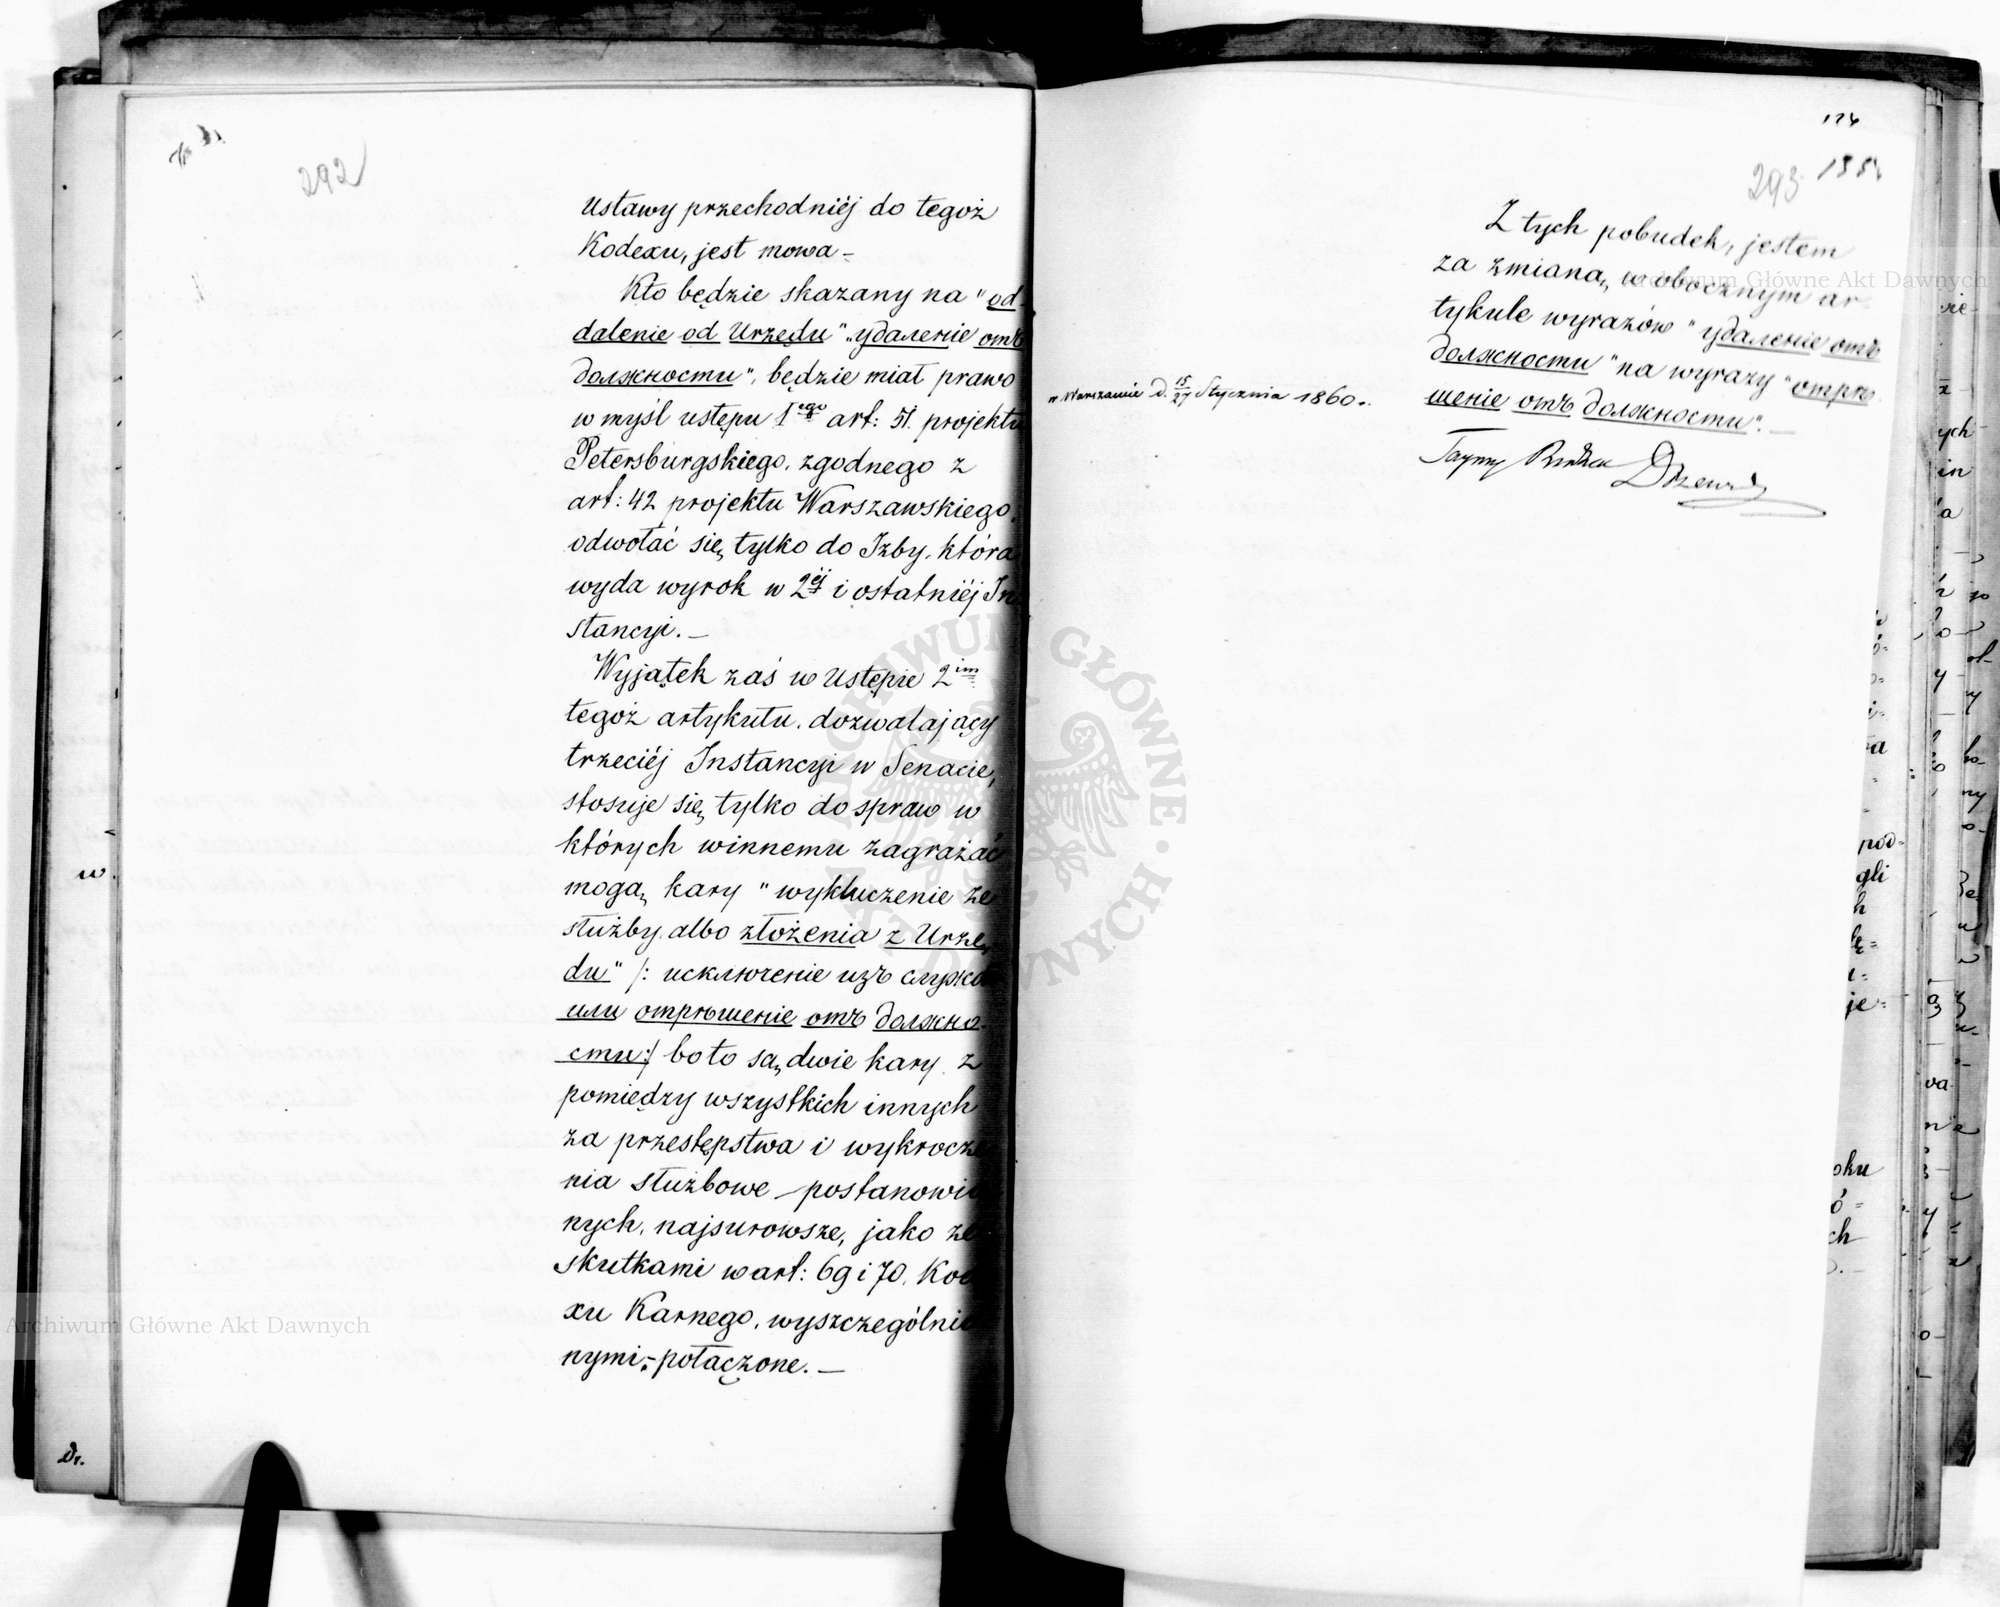 292
Ustawy przechodniéj do tegoż
Kodexu, jest mowa -
Kto będzie skazany na "od-
dalenie od Urzędu" "удаленіе отъ
должности", będzie miał prawo
w myśl ustępu 1ego art: 51. projektu
Petersburgskiego, zgodnego z
art: 42 projektu Warszawskiego,
odwołać się tylko do Izby, która
wyda wyrok w 2éj i ostatniéj In-
stancyi. —
Wyjątek zaś w Ustępie 2im
tegoż artykułu, dozwalający
trzeciéj Instancyi w Senacie,
stosuje się tylko do spraw w
których winnemu zagrażać
mogą kary "wykluczenie ze
służby albo złożenia z Urzę-
du" /: исключеніе изъ службы
или отрѣшеніе отъ должно-
сти :/ bo to są dwie kary z
pomiędzy wszystkich innych
za przestępstwa i wykrocze
nia służbowe — postanowio
nych, najsurowsze, jako ze
skutkami w art: 69 i 70. Kode
xu Karnego, wyszczególnio
nymi, - połączone. —
w.
Dr.
293
Z tych pobudek, jestem
za zmianą, w obocznym ar-
tykule wyrazów "удаленіе отъ
должности" na wyrazy "отрѣ-
шеніе отъ должности". —
w Warszawie d. 15/27 Stycznia 1860.
Tajny Radca
Archiwum Główne Akt Dawnych
Archiwum Główne Akt Dawnych
ARCHIWUM GŁÓWNE AKT DAWNYCH